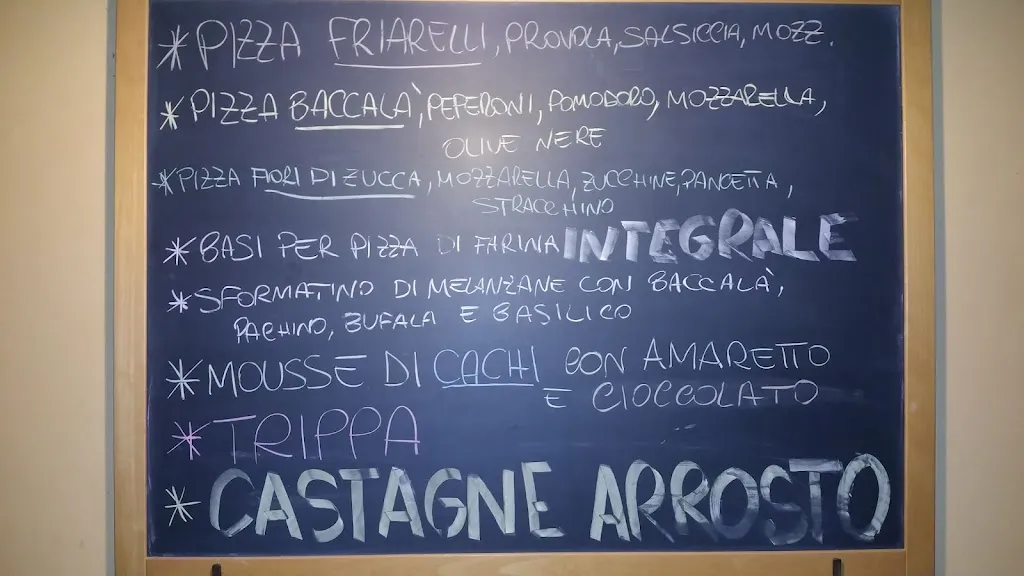 * PIZZA FRIARELLI, PROVOLA, SALSICCIA, MOZZ.
* PIZZA BACCALÀ, PEPERONI, POMODORO, MOZZARELLA,
OLIVE NERE
* PIZZA FIORI DI ZUCCA, MOZZARELLA, ZUCCHINE, PANCETTA,
STRACCHINO
* BASI PER PIZZA DI FARINA INTEGRALE
* SFORMATINO DI MELANZANE CON BACCALÀ,
PACHINO, BUFALA E BASILICO
* MOUSSE DI CACHI CON AMARETTO
E CIOCCOLATO
* TRIPPA
* CASTAGNE ARROSTO